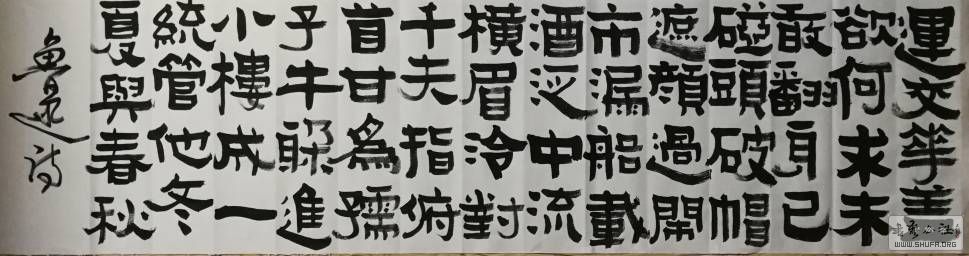 運交華蓋
欲何求未
敢翻身已
碰頭破帽
遮顔過閙
市漏船載
酒泛中流
橫眉冷對
千夫指俯
首甘爲孺
子牛躲進
小樓成一
統管他冬
夏與春秋
魯迅詩
WWW.SHUFA.ORG